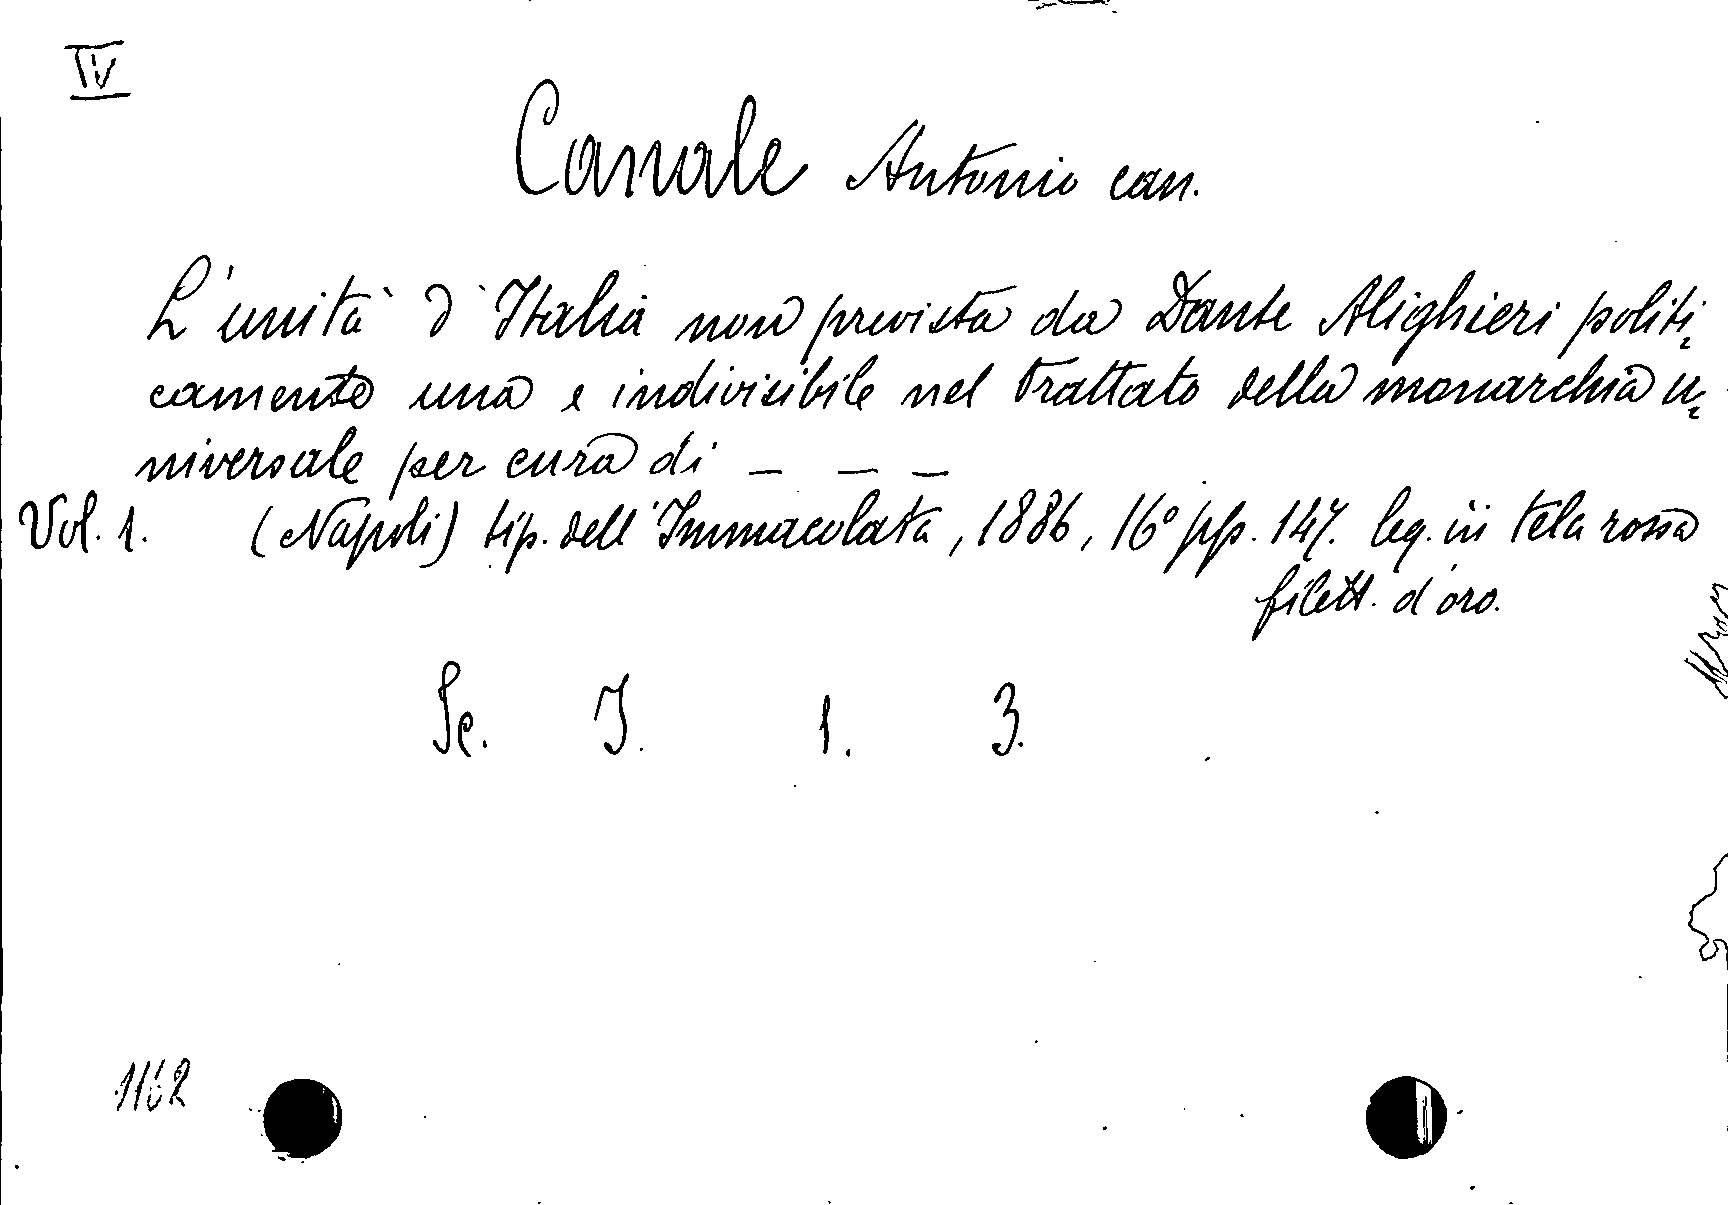 IV
Canale Antonio can.
L'unità d'Italia non prevista da Dante Alighieri politi-
camente una e indivisibile nel trattato della monarchia u-
niversale per cura di _ _ _
Vol. 1. (Napoli) tip. dell'Immacolata, 1886, 16° pp. 147. leg. in tela rossa
filett. d'oro.
Sc. I. 1. 3.
1162